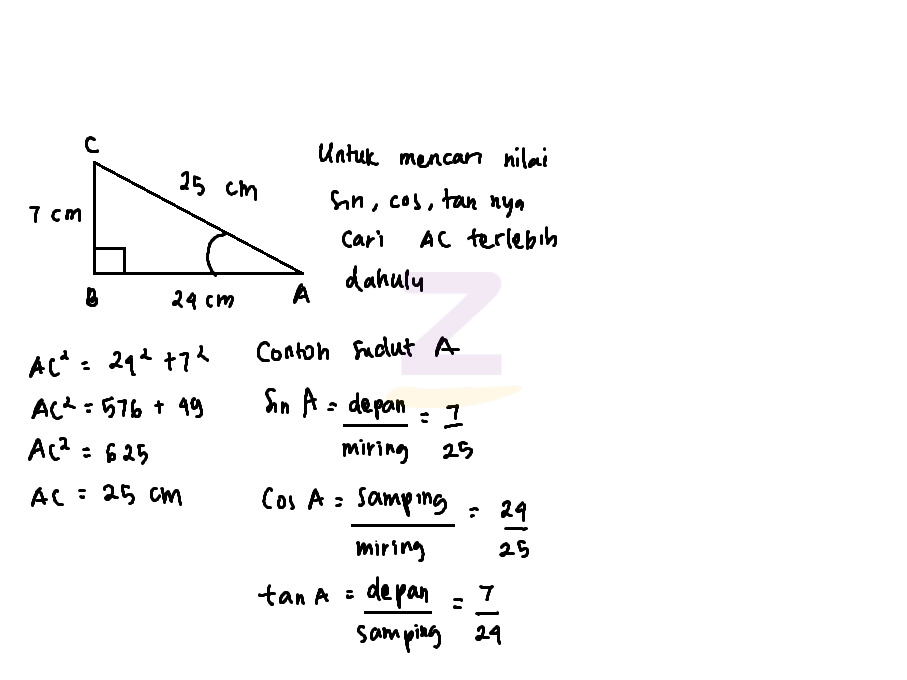 C
25 cm
7 cm
B
24 cm
A
Untuk mencari nilai
sin, cos, tan nya
cari AC terlebih
dahulu
AC² = 24² + 7²
AC² = 576 + 49
AC² = 625
AC = 25 cm
Contoh sudut A
Sin A = depan/miring = 7/25
Cos A = samping/miring = 24/25
tan A = depan/samping = 7/24
Z